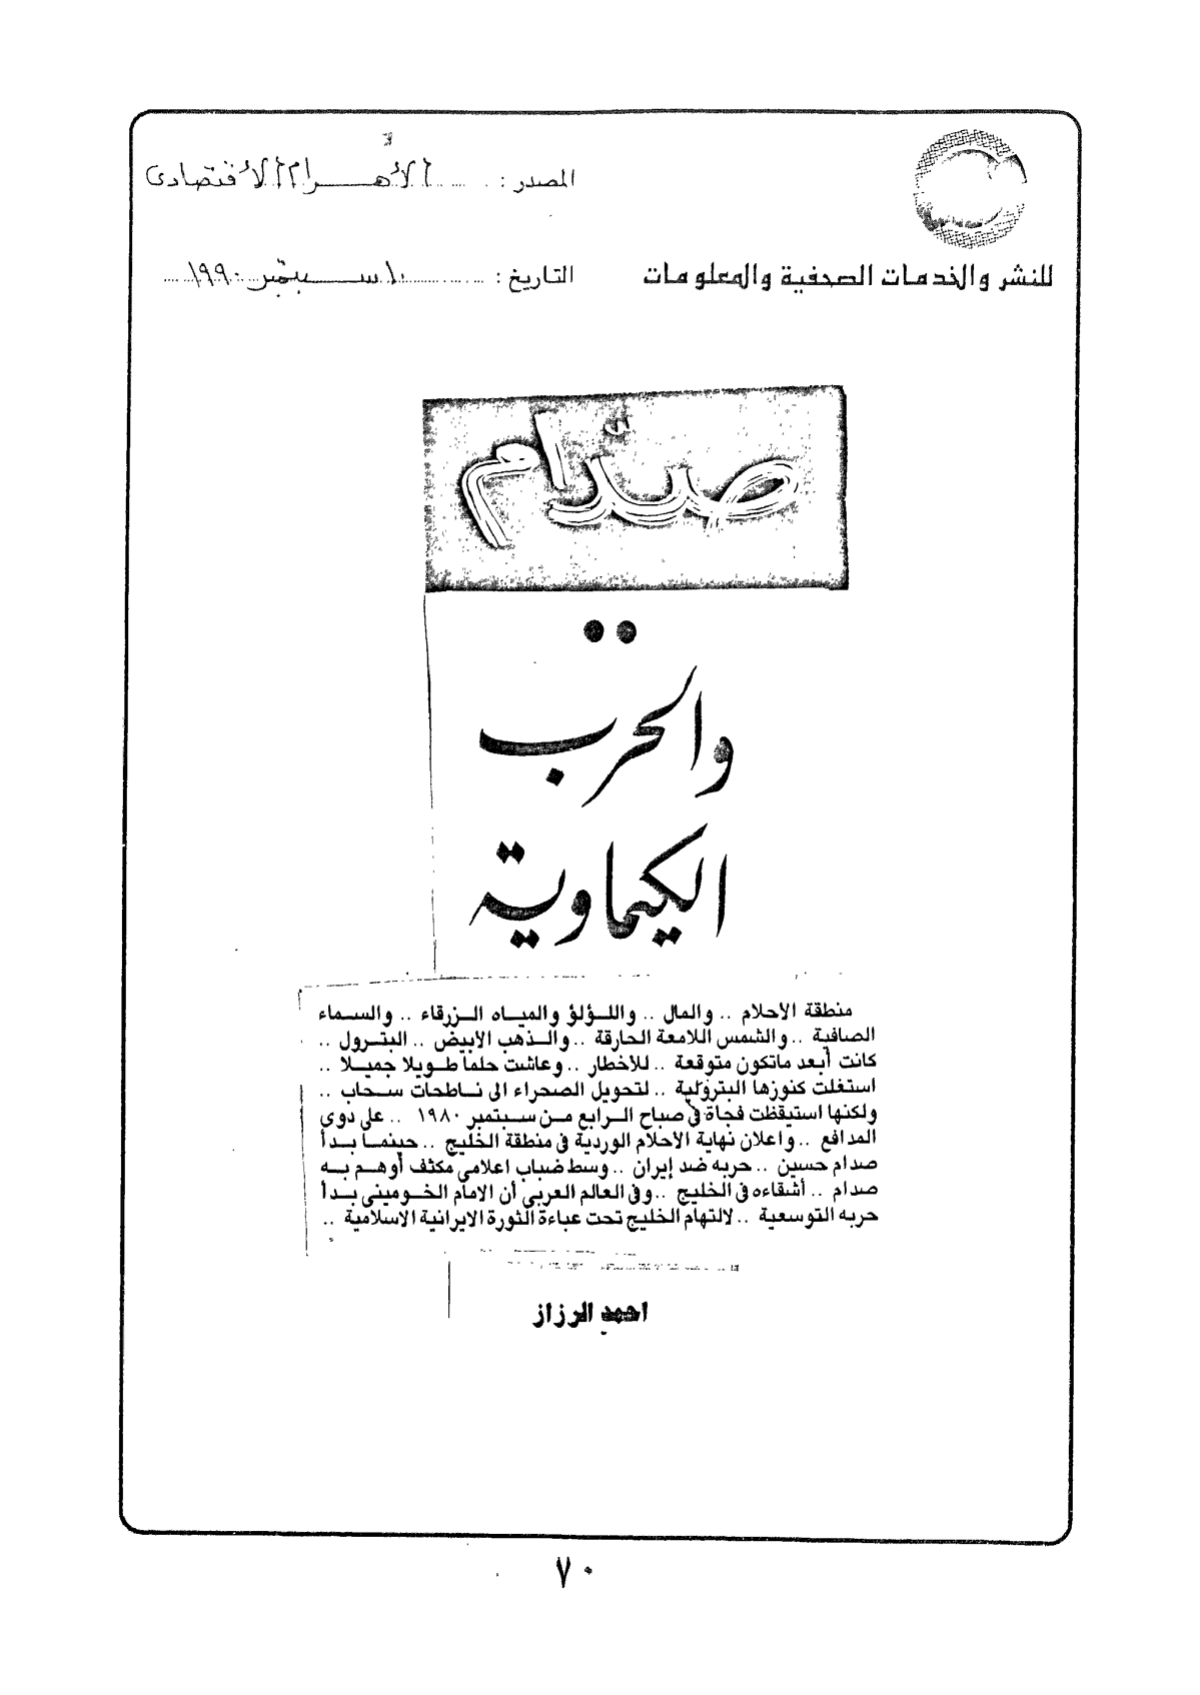 المصدر : الأهرام الاقتصادى
للنشر والخدمات الصحفية والمعلومات
التاريخ : ١٠ سبتمبر ١٩٩٠
صدّام
..
والحرب
الكيماوية
منطقة الاحلام .. والمال .. واللـؤلؤ والميـاه الـزرقاء .. والسـماء
الصافية .. والشمس اللامعة الحارقة .. والـذهب الابيض .. البتـرول ..
كانت أبعد ماتكون متوقعة .. للأخطار .. وعاشت حلما طـويلا جميـلا ..
استغلت كنوزها البترولية .. لتحويل الصحراء الى نـاطحات سـحاب ..
ولكنها استيقظت فجأة فى صباح الـرابع مـن سـبتمبر ١٩٨٠ .. على دوى
المدافع .. واعلان نهاية الاحلام الوردية فى منطقة الخليج .. حينمـا بـدأ
صدام حسين .. حربه ضد إيران .. وسط ضباب اعلامى مكثف أوهـم بـه
صدام .. أشقاءه فى الخليج .. وفى العالم العربى أن الامام الخـومينى بـدأ
حربه التوسعية .. لالتهام الخليج تحت عباءة الثورة الايرانية الاسلامية ..
احمد الرزاز
٧٠